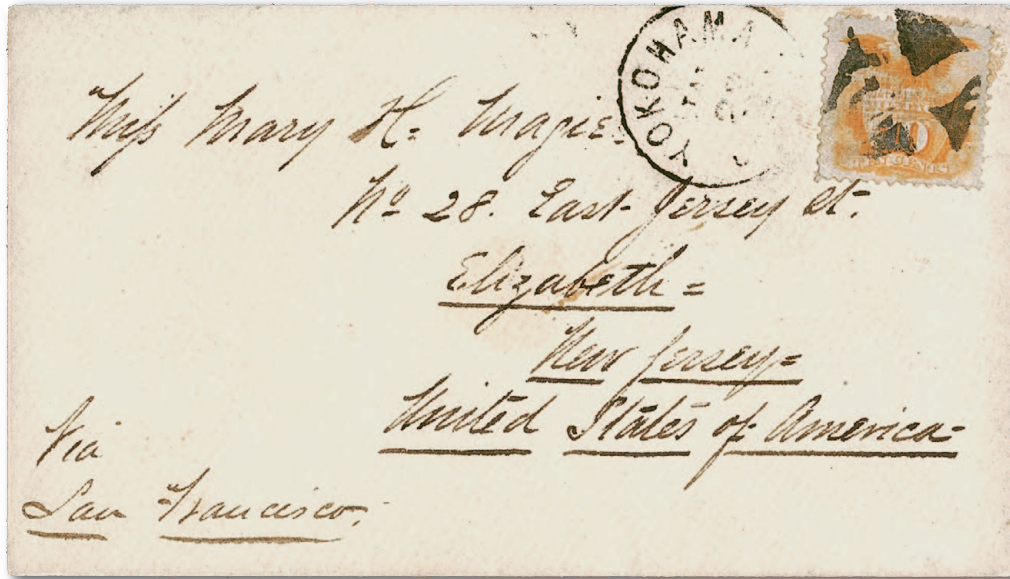 YOKOHAMA
Miss Mary H. Magie
No 28. East Jersey St.
Elizabeth =
New Jersey =
United States of America -
Via
San Francisco.
10